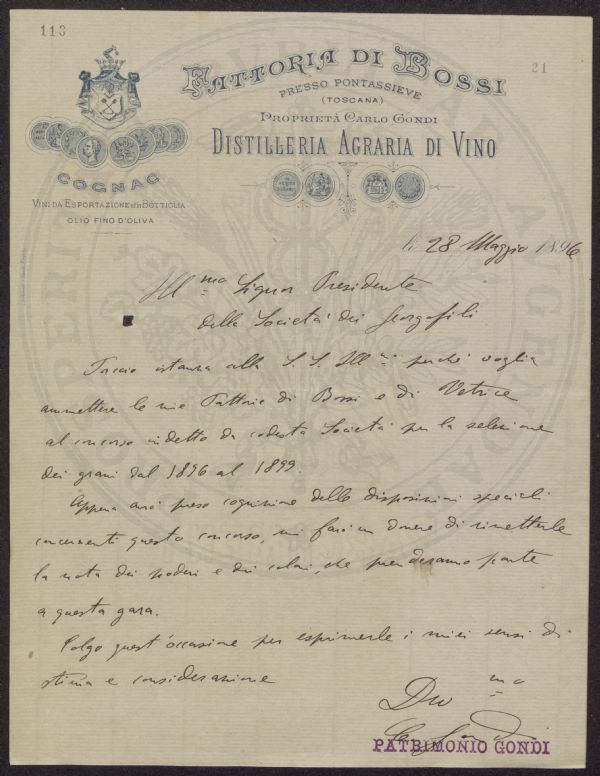 113
21
FATTORIA DI BOSSI
PRESSO PONTASSIEVE
(TOSCANA)
PROPRIETÀ CARLO GONDI
DISTILLERIA AGRARIA DI VINO
COGNAC
VINI DA ESPORTAZIONE ED IN BOTTIGLIA
OLIO FINO D'OLIVA
li 28 Maggio 1896
Ill.mo Signor Presidente
della Società dei Georgofili
Faccio istanza alla S. S. Ill.ma perché voglia
ammettere le mie Fattorie di Bossi e di Vetrice
al concorso indetto da codesta Società per la selezione
dei grani dal 1896 al 1899.
Appena avrò preso cognizione delle disposizioni speciali
concernenti questo concorso, mi farò un dovere di rimetterle
la nota dei poderi e dei coloni, che prenderanno parte
a questa gara.
Colgo quest'occasione per esprimerle i miei sensi di
stima e considerazione
Dev.mo
C. Gondi
PATRIMONIO GONDI